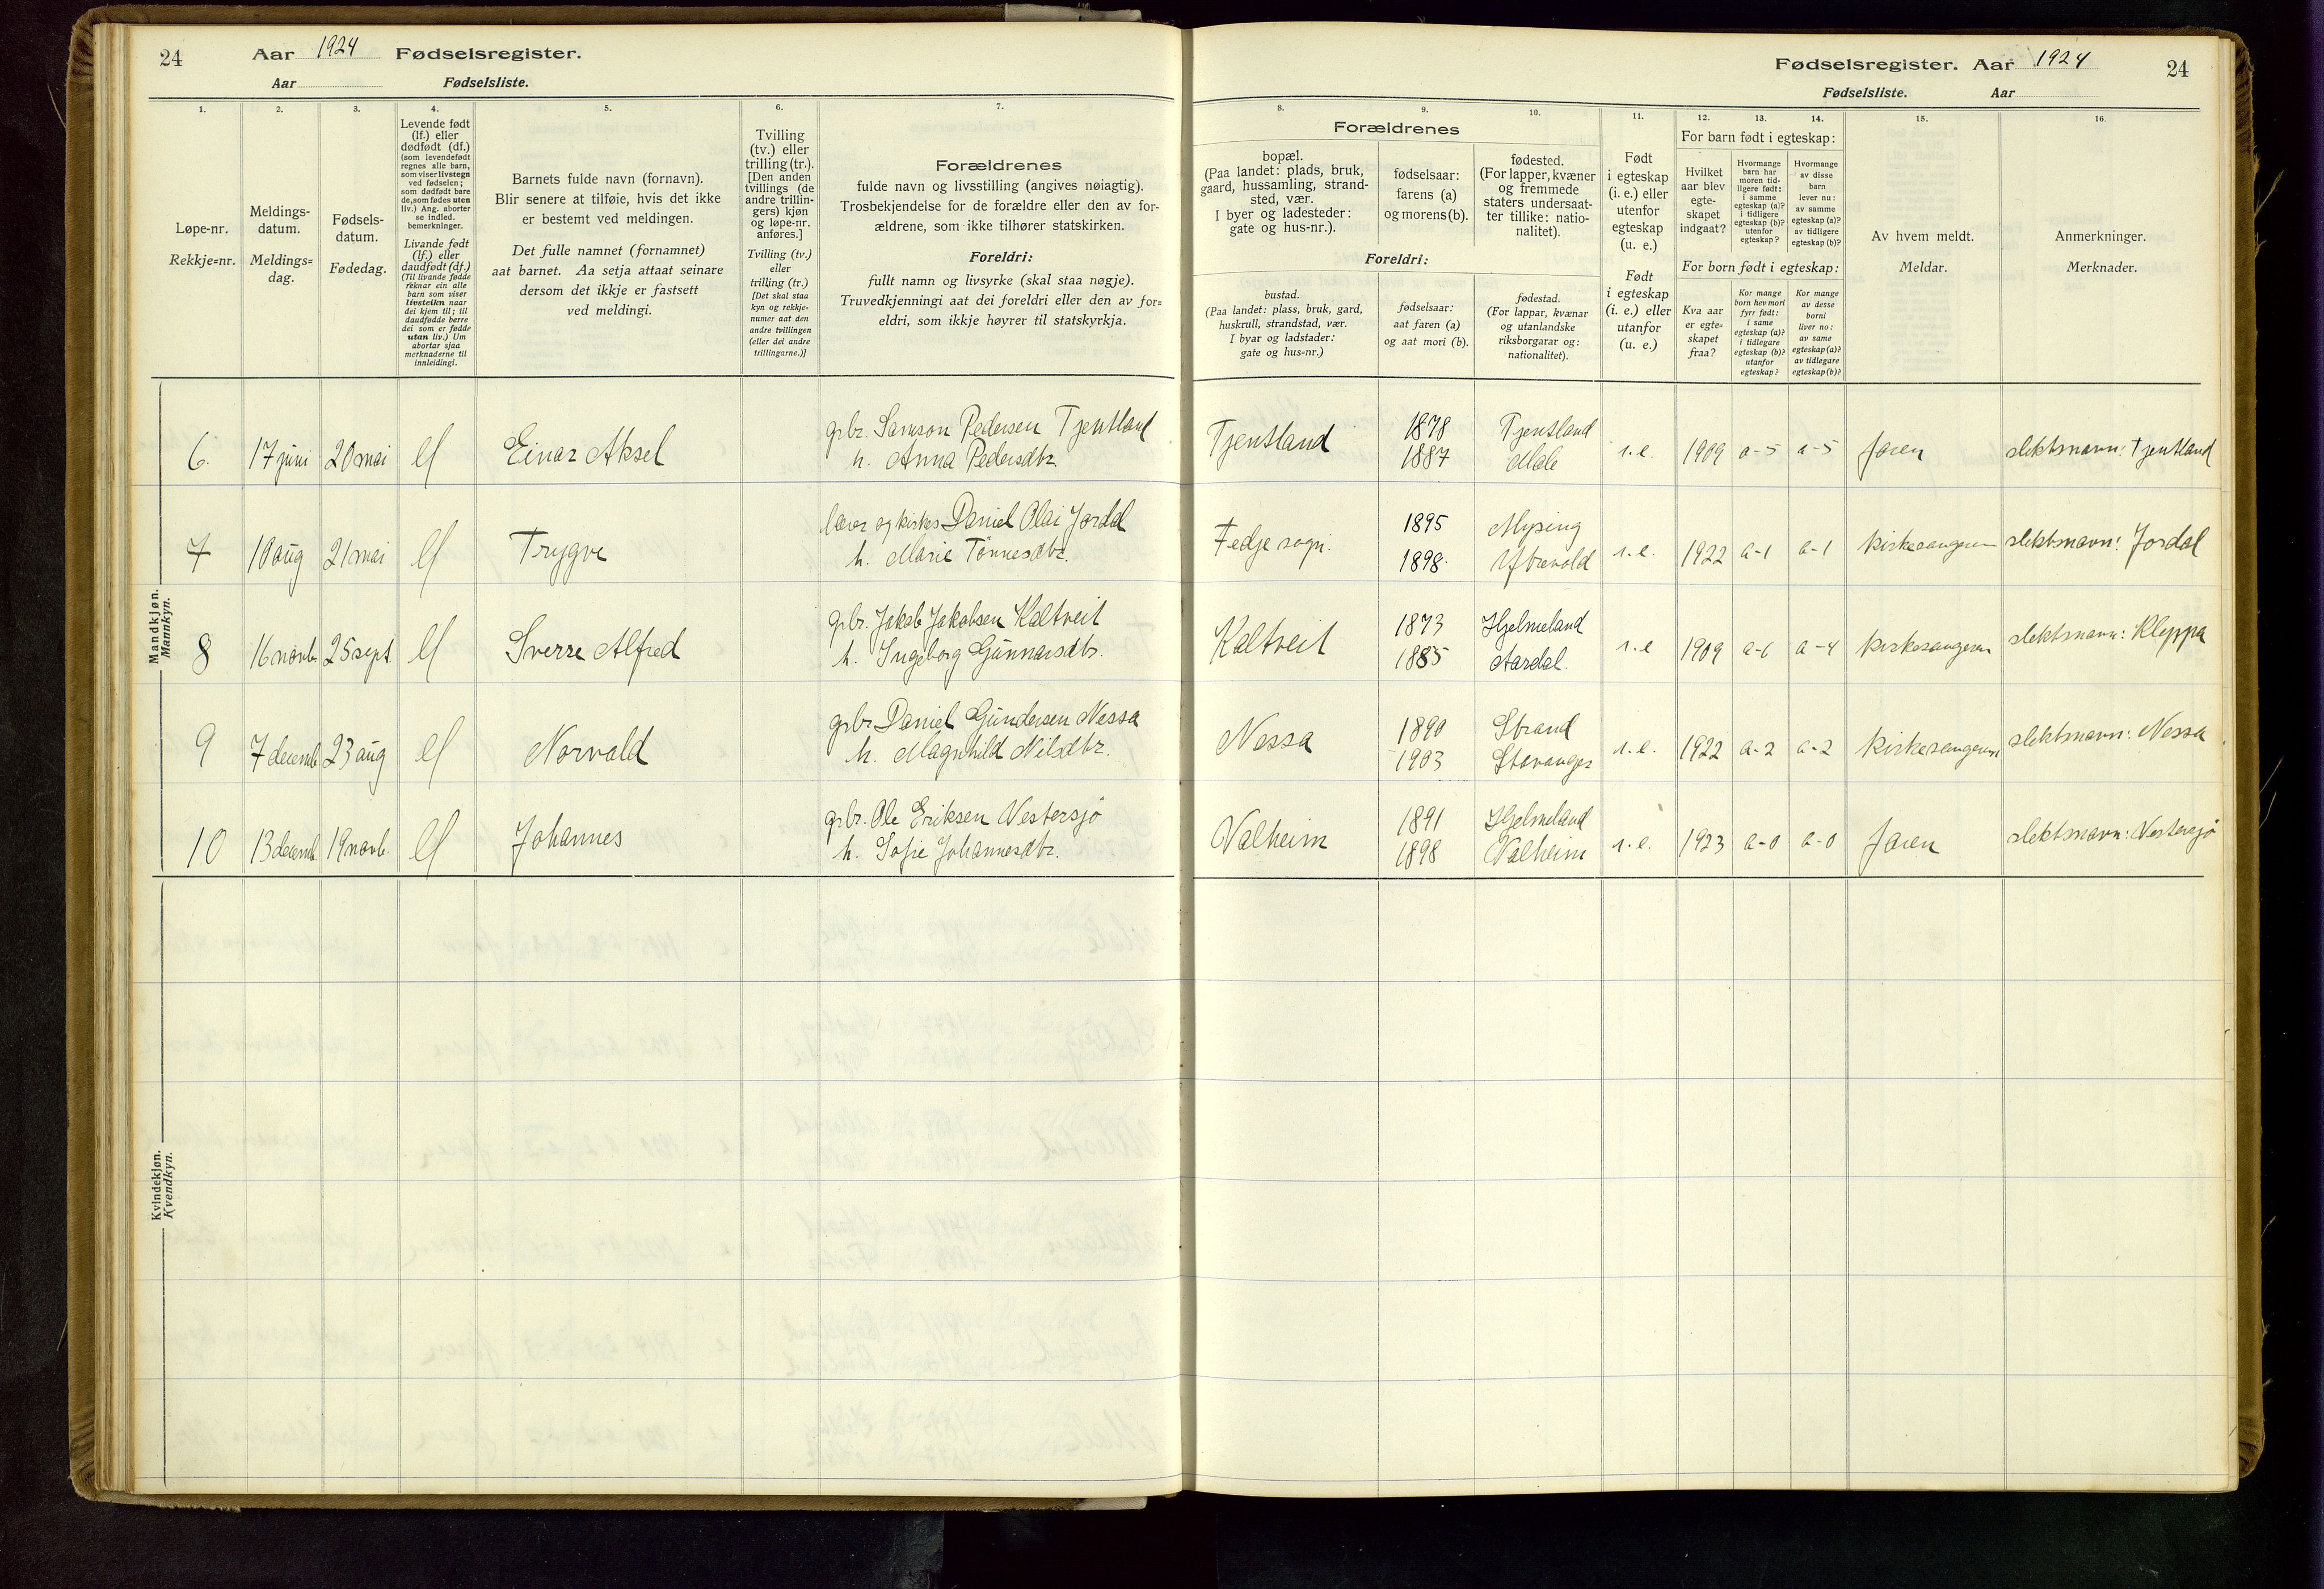 24 Aar 1924 Fødselsregister.
Aar Fødselsliste.
Fødselsregister. Aar 1924 24
Fødselsliste. Aar
1.
Løpe-nr.
Rekkje=nr.
2.
Meldings-
datum.
Meldings=
dag.
3.
Fødsels-
datum.
Fødedag.
4.
Levende født
(lf.) eller
dødfødt (df.)
(som levendefødt
regnes alle barn,
som viser livstegn
ved fødselen;
som dødfødt bare
de, som fødes uten
liv.) Ang. aborter
se indled.
bemerkninger.
Livande født
(lf.) eller
daudfødt (df.)
(Til livande fødde
reknar ein alle
barn som viser
livsteikn naar
dei kjem til; til
daudfødde berre
dei som er fødde
utan liv.) Um
abortar sjaa
merknaderne til
innleidingi.
5.
Barnets fulde navn (fornavn).
Blir senere at tilføie, hvis det ikke
er bestemt ved meldingen.
Det fulle namnet (fornamnet)
aat barnet. Aa setja attaat seinare
dersom det ikkje er fastsett
ved meldingi.
6.
Tvilling
(tv.) eller
trilling (tr.).
[Den anden
tvillings (de
andre trillin-
gers) kjøn
og løpe-nr.
anføres.]
Tvilling (tv.)
eller
trilling (tr.)
[Det skal staa
kyn og rekkje-
numer aat den
andre tvillingen
(eller dei andre
trillingarne.)]
7.
Forældrenes
fulde navn og livsstilling (angives nøiagtig).
Trosbekjendelse for de forældre eller den av for-
ældrene, som ikke tilhører statskirken.
Foreldri:
fullt namn og livsyrke (skal staa nøgje).
Truvedkjenningi aat dei foreldri eller den av for=
eldri, som ikkje høyrer til statskyrkja.
Forældrenes
8.
bopæl.
(Paa landet: plads, bruk,
gaard, hussamling, strand-
sted, vær.
I byer og ladesteder:
gate og hus-nr.).
9.
fødselsaar:
farens (a)
og morens (b).
10.
fødested.
(For lapper, kvæner
og fremmede
staters undersaat-
ter tillike: natio-
nalitet).
Foreldri:
bustad.
(Paa landet: plass, bruk, gard,
huskrull, strandstad, vær.
I byar og ladstader:
gate og hus=nr.)
fødselsaar:
aat faren (a)
og aat mori (b).
fødestad.
(For lappar, kvænar
og utanlandske
riksborgarar og:
nationalitet).
11.
Født
i egteskap
(i. e.) eller
utenfor
egteskap
(u. e.)
Født
i egteskap
(i. e.) eller
utanfor
(u. e.)
12. 13. 14.
For barn født i egteskap:
Hvilket
aar blev
egte-
skapet
indgaat?
Hvormange
barn har
moren tid-
ligere født:
i samme
egteskap (a)?
i tidligere
egteskap (b)?
utenfor
egteskap?
Hvormange
av disse
barn
lever nu:
av samme
egteskap (a)?
av tidligere
egteskap (b)?
For born født i egteskap:
Kva aar
er egte=
skapet
fraa?
Kor mange
born hev mori
fyrr født:
i same
egteskap (a)?
i tidlegare
egteskap (b)?
utanfor
egteskap?
Kor mange
av desse
borni
liver no:
av same
egteskap (a)?
av tidlegare
egteskap (b)?
15.
Av hvem meldt.
Meldar.
16.
Anmerkninger.
Merknader.
Mandkjøn.
Mannkyn.
6. 17 juni 20 mai lf Einar Aksel
grbr. Samson Pedersen Tjentland
h. Anna Pedersdtr.
Tjentland 1878 Tjentland
1887 Mæle
i.e. 1909 a-5 a-5 faren slektsnavn: Tjentland
7 10 aug 21 mai lf Trygve
lærer og kirkes. Daniel Olai Jordal
h. Marie Tønnesdtr.
Fedje sogn. 1895
1898. Ytrevold
i.e. 1922 a-1 a-1 kirkesangeren slektsnavn: Jordal
8 16 novb 25 sept. lf Sverre Alfred
grbr. Jakob Jakobsen Kaltveit
h. Ingeborg Gunnarsdtr.
Kaltveit 1873 Hjelmeland
1885 Aardal.
i.e 1909 a-6 a-4 kirkesangeren slektsnavn: Kleppa
9 7 decemb 23 aug lf Norvald
grbr. Daniel Gundersen Nessa
h. Magnhild Nilsdtr.
Nessa 1890 Strand
1903 Stavanger
i.e. 1922 a-2 a-2 kirkesangeren slektsnavn: Nessa
10 13 decemb. 19 novb. lf Johannes
grbr. Ole Eriksen Vestersjø
h. Sofie Johannesdtr.
Valheim 1891 Hjelmeland
1898 Valheim
i.e. 1923 a-0 a-0 faren slektsnavn: Vestersjø
Kvindekjøn.
Kvendkyn.